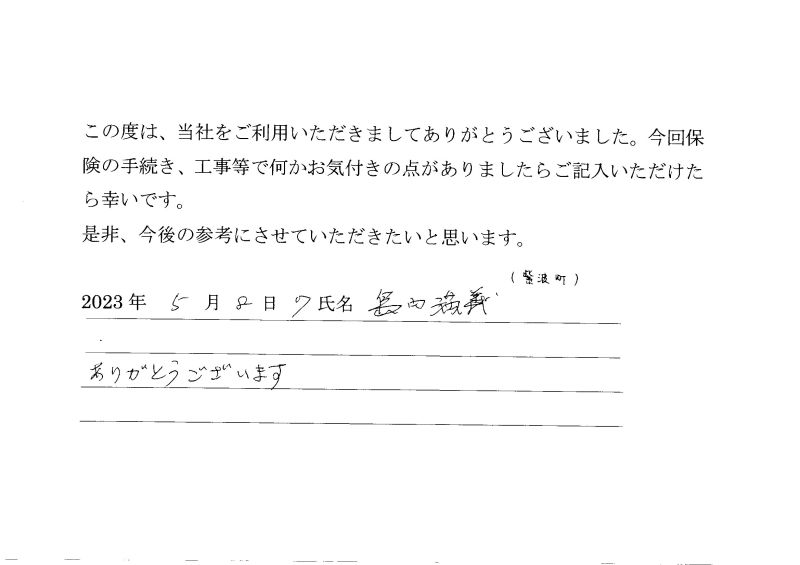 この度は、当社をご利用いただきましてありがとうございました。今回保
険の手続き、工事等で何かお気付きの点がありましたらご記入いただけた
ら幸いです。
是非、今後の参考にさせていただきたいと思います。
(鷲波町)
2023 年 5 月 2 日 氏名 内 満義
ありがとうございます